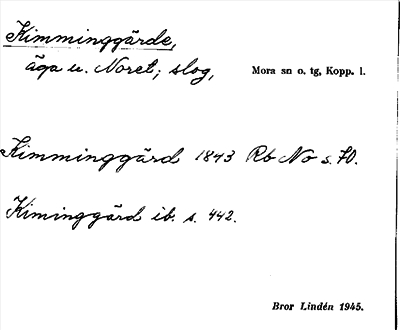 Kimminggärde,
äga u. Noret; slog, Mora sn o. tg, Kopp. l.
Kimminggärd 1843 Rb No s. 70.
Kiminggärd ib. s. 442.
Bror Lindén 1945.